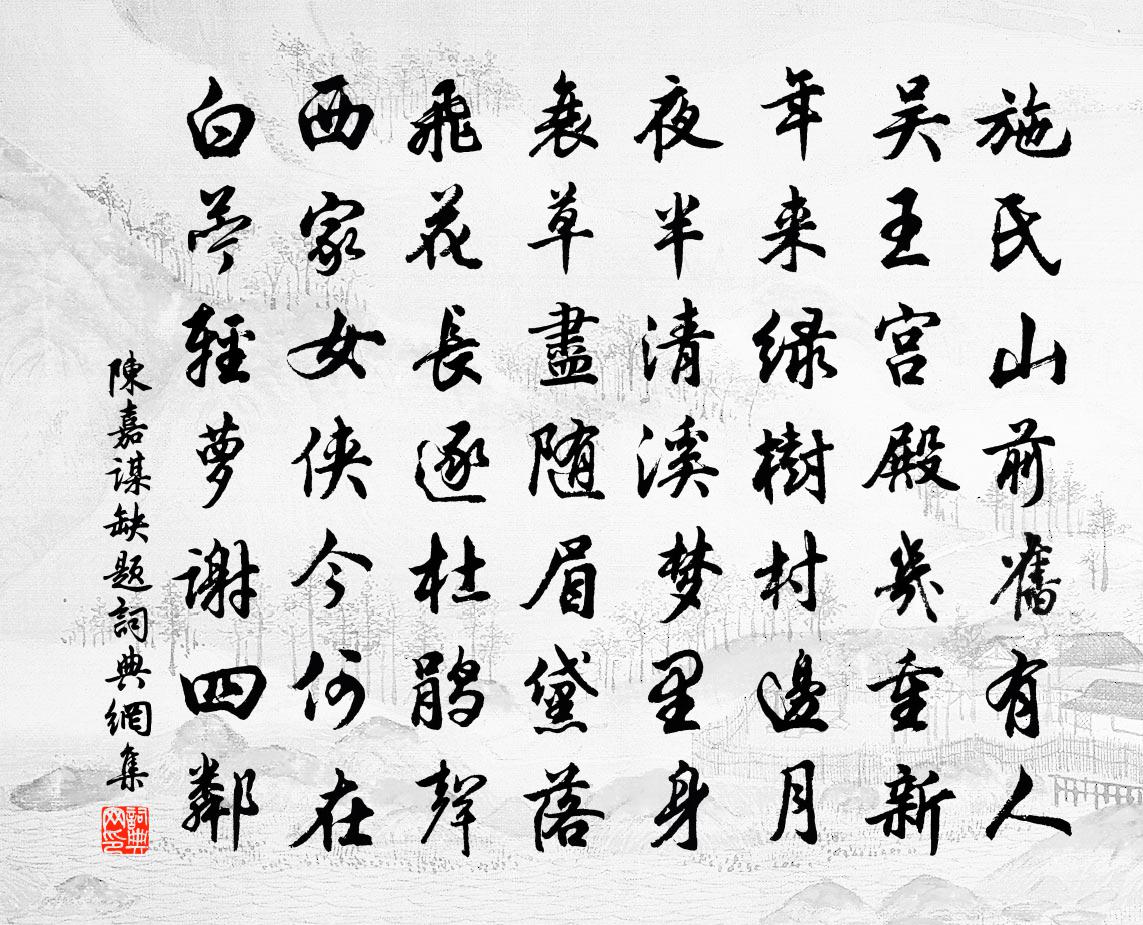 施氏山前旧有人
吴王宫殿几重新
年来绿树村边月
夜半清溪梦里身
衰草盡随眉黛落
飛花長逐杜鹃聲
西家女侠今何在
白苎輕萝谢四鄰
陳嘉谋缺题詞典網集
詞典